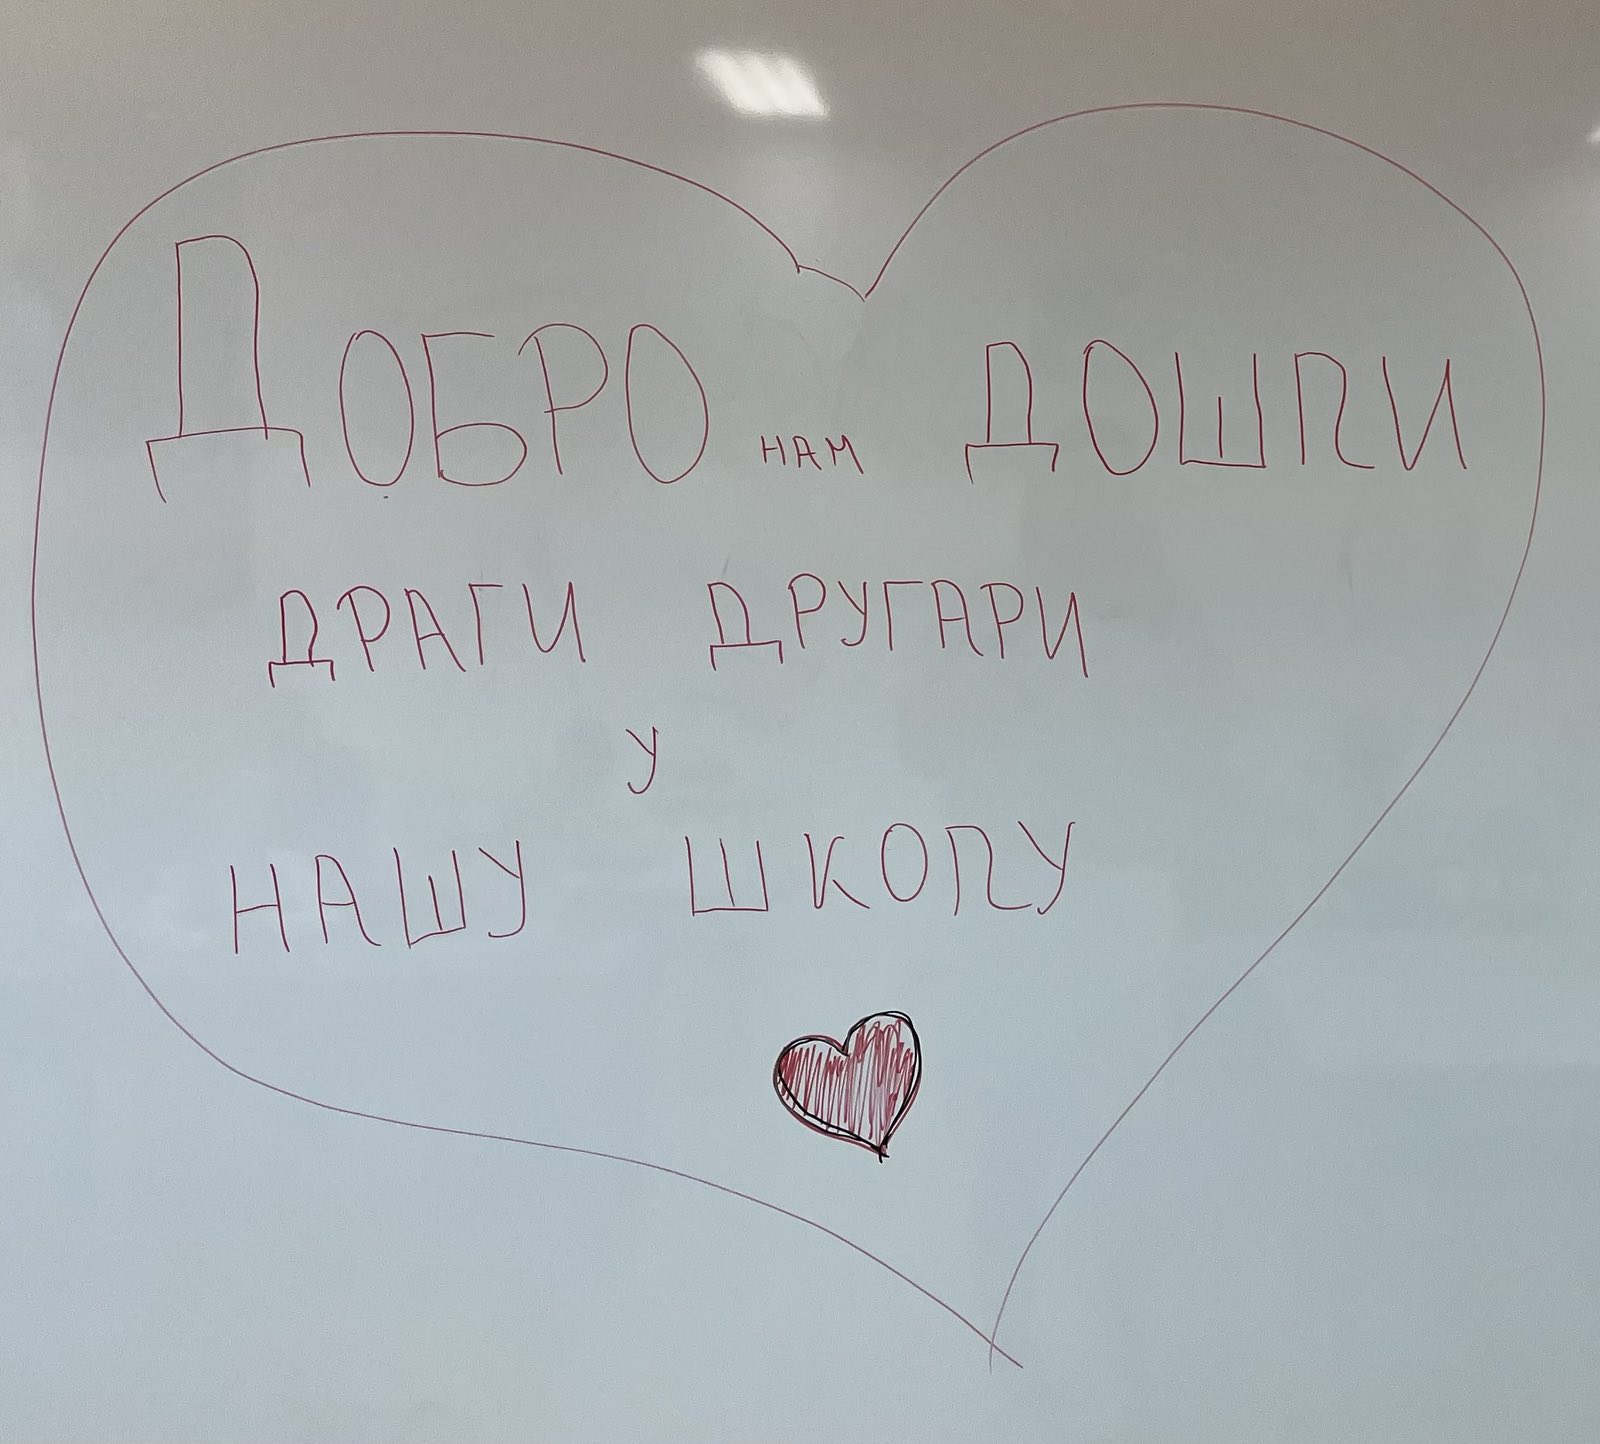 ДОБРО НАМ ДОШЛИ
ДРАГИ ДРУГАРИ
У
НАШУ ШКОЛУ